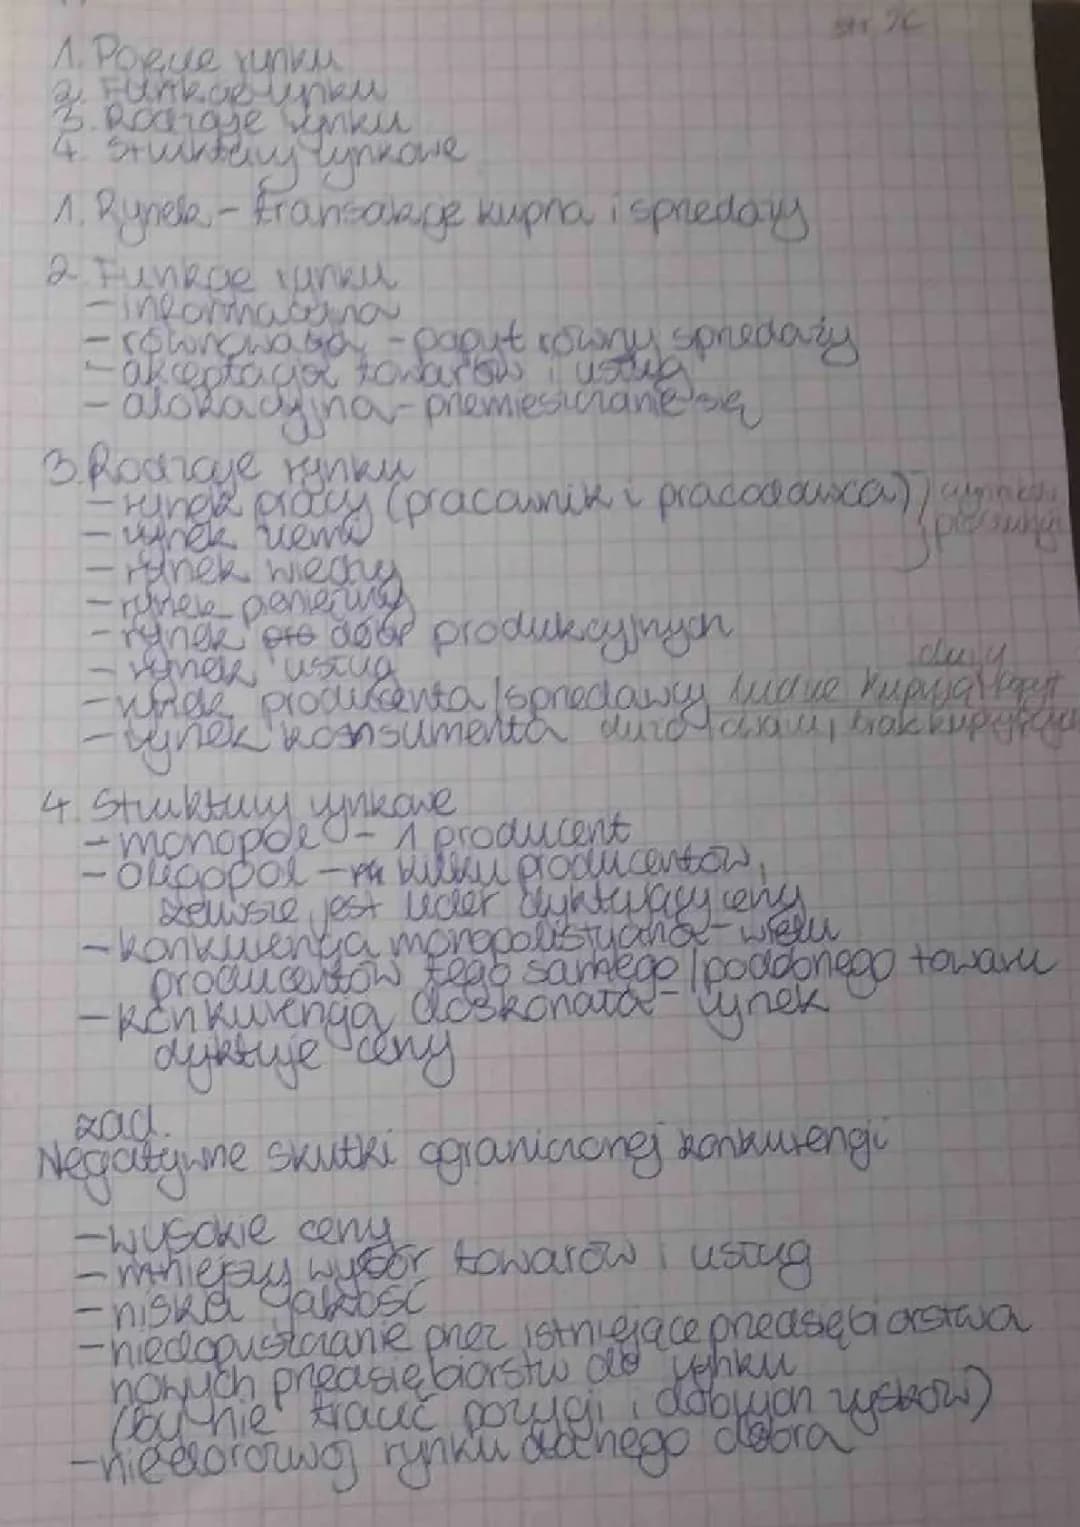 1. Pojęcie rynku
2. Funkcje rynku
3. Rodzaje rynku
4. Struktury rynkowe
1. Rynek - transakcje kupna i sprzedaży
2. Funkcje rynku
- informacyjna
- równowaga - popyt równy sprzedaży
- akceptacja towarów i usług
- alokacyjna - przemieszczanie się
3. Rodzaje rynku
- rynek pracy (pracownik i pracodawca)
- rynek ziemi
- rynek wiedzy
- rynek pieniężny
- rynek dóbr produkcyjnych
- rynek usług
duży
- rynek producenta/sprzedawcy ludzie kupują popyt
- rynek konsumenta dużo towaru, brak
4. Struktury rynkowe
- monopol - 1 producent
- oligopol - kilku producentów,
zawsze jest lider dyktujący ceny
- konkurencja monopolistyczna - wielu
producentów tego samego/podobnego towaru
- konkurencja doskonała - rynek
dyktuje ceny
zad.
Negatywne skutki ograniczonej konkurencji
- wysokie ceny
- mniejszy wybór towarów i usług
- niska jakość
- niedopuszczanie przez istniejące przedsiębiorstwa
nowych przedsiębiorstw do rynku
(by nie tracić pozycji i dobrych zysków)
- niedorozwój rynku danego dobra